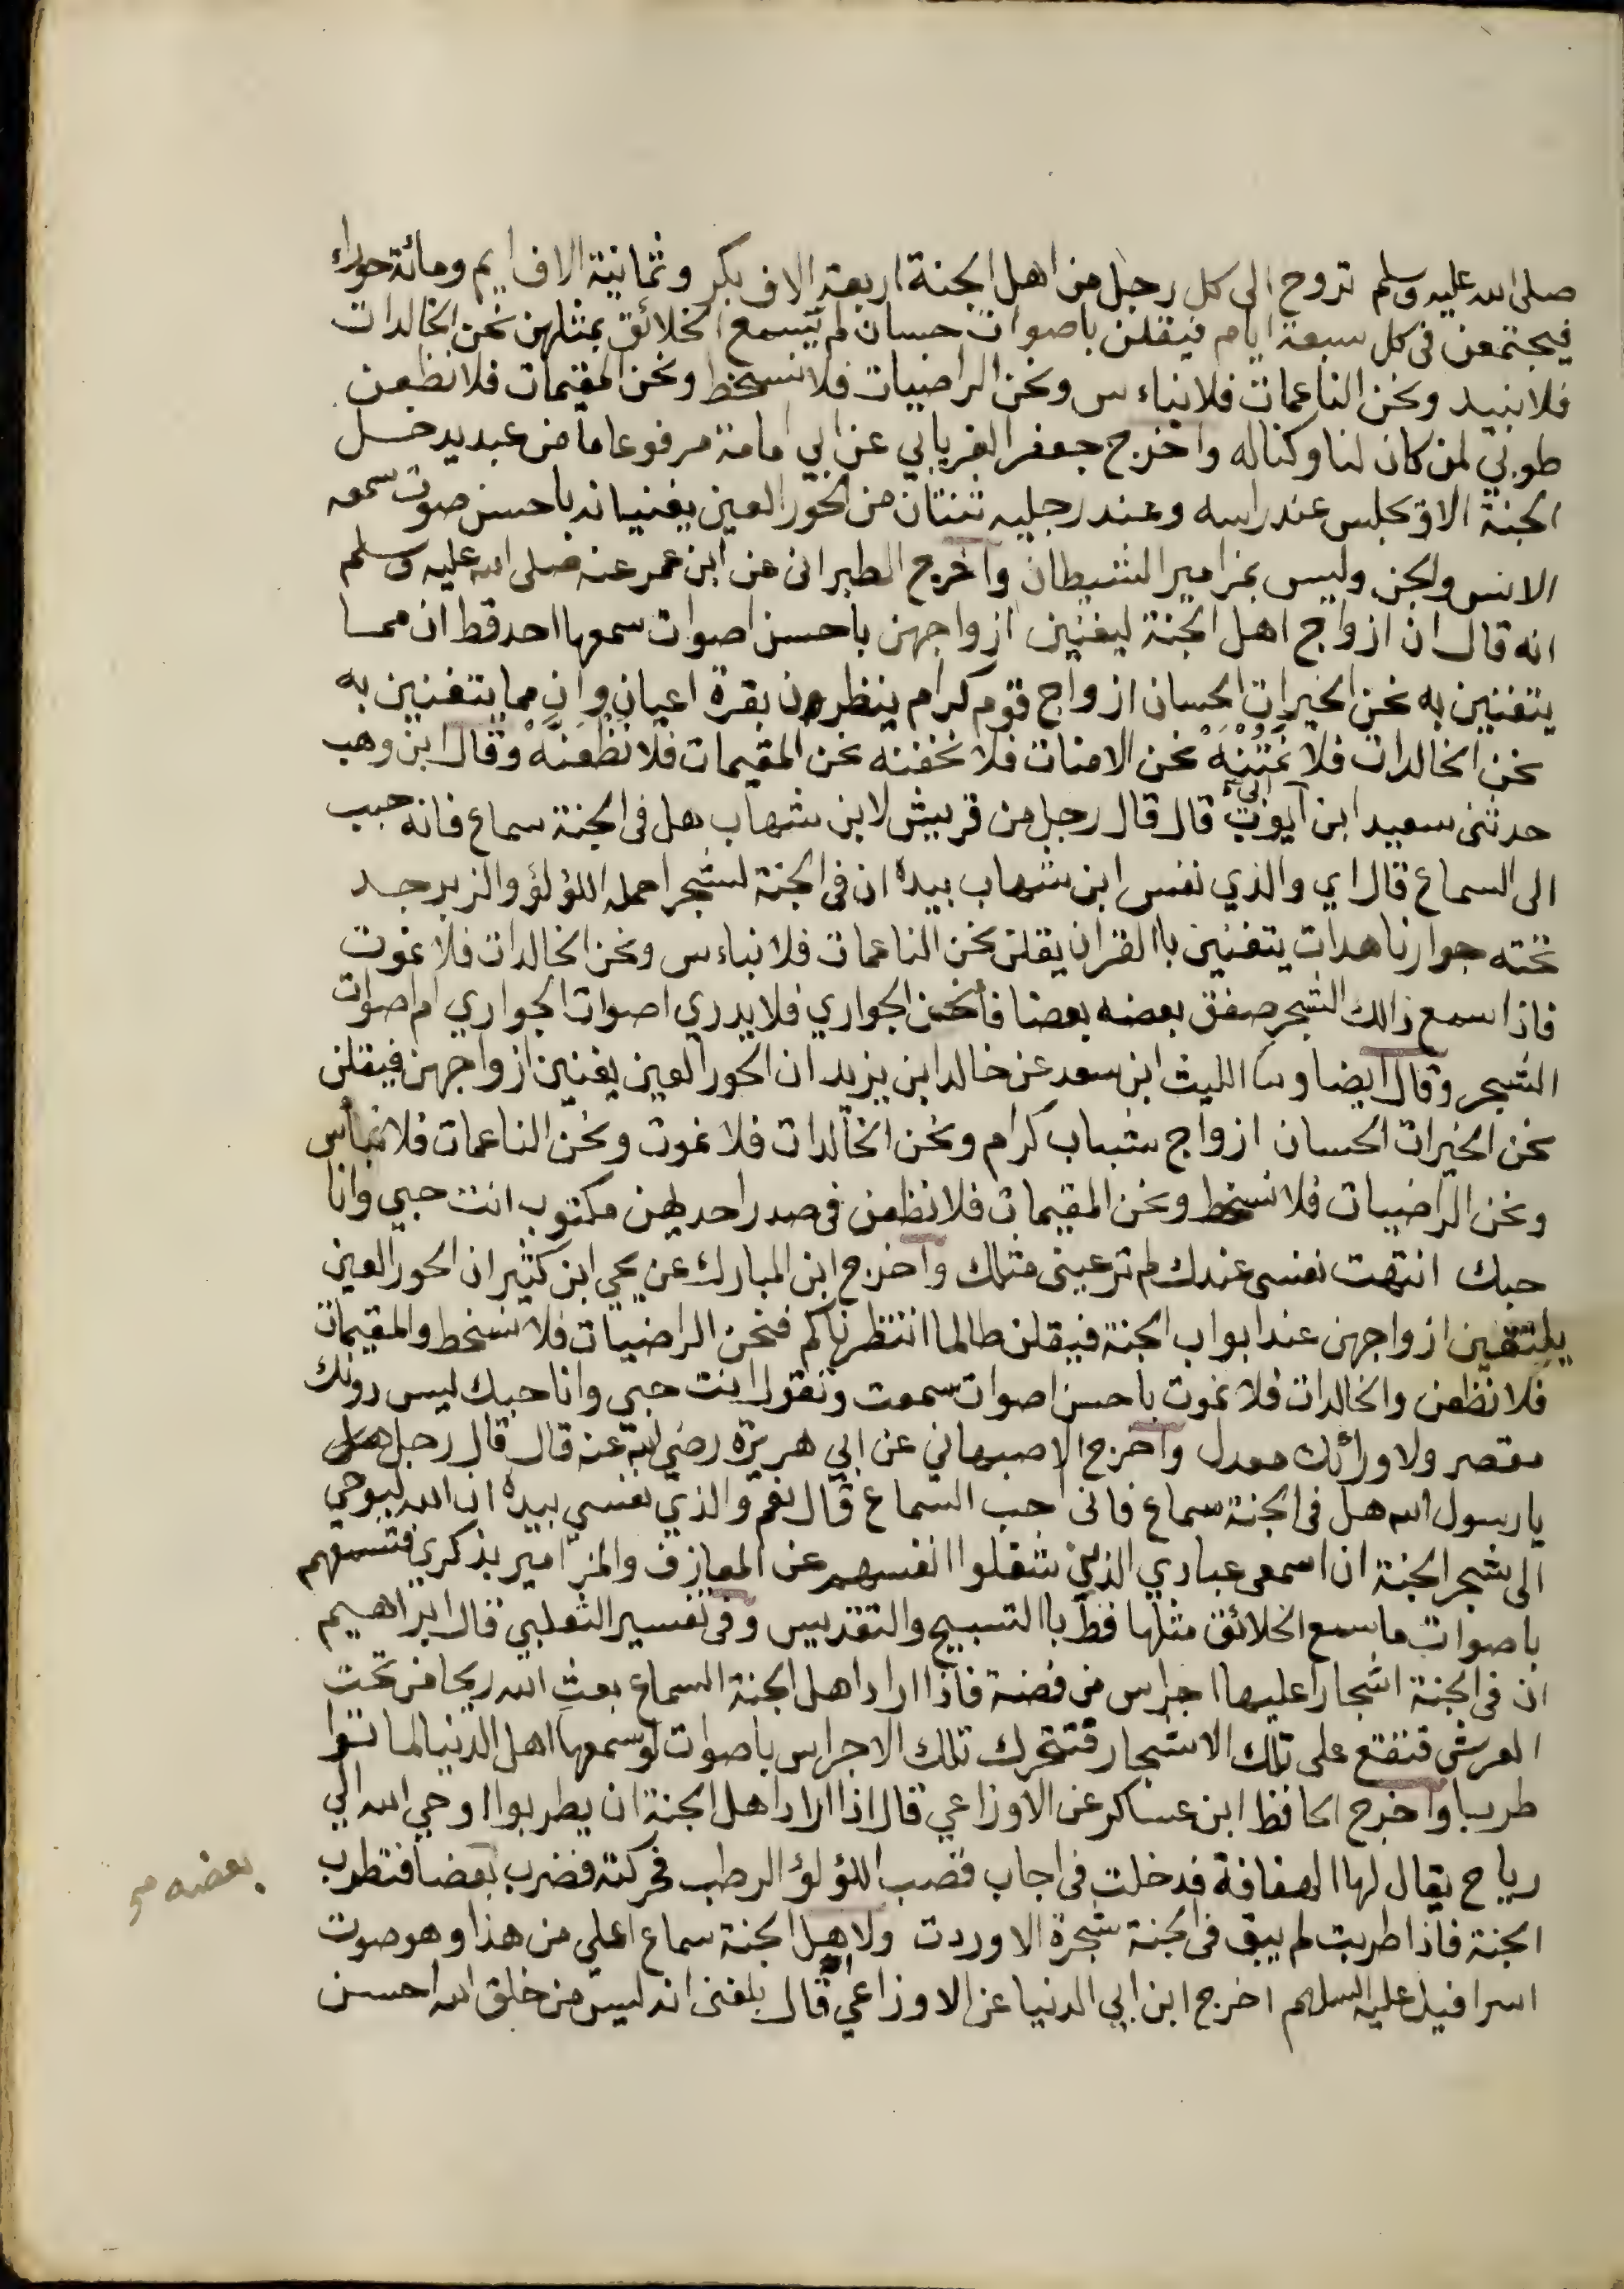 صلى الله عليه وسلم تزوج الى كل رجل من اهل الجنة اربعة الاف بكر وثمانية الاف ايم ومائة حوراء
فيجتمعن فى كل سبعة ايام فيقلن باصوات حسان لم يسمع الخلائق بمثلهن نحن الخالدات
فلا نبيد ونحن الناعمات فلا نباءس ونحن الراضيات فلا نسخط ونحن المقيمات فلا نظعن
طوبي لمن كان لنا وكنا له واخرج جعفر الفريابي عن ابي امامة مرفوعا ما من عبد يدخل
الجنة الا وتجلس عند راسه وعند رجليه ثنتان من الحور العين يغنيانه باحسن صوت سمعه
الانس والجن وليس بمزامير الشيطان واخرج الطبرانى عن ابن عمر عنه صلى الله عليه وسلم
انه قال ان ازواج اهل الجنة ليغنين ازواجهن باحسن اصوات سمعها احد قط ان مما
يتغنين به نحن الخيرات الحسان ازواج قوم كرام ينظرون بقرة اعيان وان مما يتغنين به
نحن الخالدات فلا نمتنه نحن الامنات فلا نخفنه نحن المقيمات فلا نظعنه وقال ابن وهب
حدثنى سعيد ابن ابي ايوب قال قال رجل من قريش لابن شهاب هل فى الجنة سماع فانه حبب
الى السماع قال اي والذي نفس ابن شهاب بيده ان فى الجنة لشجرا حمله اللؤلؤ والزبرجد
تحته جوار ناهدات يتغنين باالقران يقلن نحن الناعمات فلا نباءس ونحن الخالدات فلا نموت
فاذا سمع ذالك الشجر صفق بعضه بعضا فأ الجواري فلا يدري اصوات الجواري ام اصوات
الشجر وقال ايضا وثنا الليث ابن سعد عن خالد ابن يزيد ان الحور العين يغنين ازواجهن فيقلن
نحن الخيرات الحسان ازواج شباب كرام ونحن الخالدات فلا نموت ونحن الناعمات فلا نبأس
ونحن الراضيات فلا نسخط ونحن المقيمات فلا نظعن فى صدر احديهن مكتوب انت حبي وانا
حبك انتهت نفسى عندك لم ترعينى مثلك واخرج ابن المبارك عن يحي ابن كثير ان الحور العين
يلتقين ازواجهن عند ابواب الجنة فيقلن طالما انتظرناكم فنحن الراضيات فلا نسخط والمقيمات
فلا نظعن والخالدات فلا نموت باحسن اصوات سمعت وتقول انت حبي وانا حبك ليس دونك
مقصر ولا ورائك معدل واخرج الاصبهاني عن ابي هريرة رضي الله عنه قال قال رجل هل
يا رسول الله هل فى الجنة سماع فانى احب السماع قال نعم والذي نفسي بيده ان الله ليوحي
الى شجر الجنة ان اسمعى عبادي الذين شغلوا انفسهم عن المعازف والمزامير بذكري فتسمعهم
باصوات ما سمع الخلائق مثلها قط باالتسبيح والتقديس وفى تفسير الثعلبي قال ابراهيم
ان فى الجنة اشجارا عليها اجراس من فضة فاذا اراد اهل الجنة السماع بعث الله ريحا من تحت
العرش فتقع على تلك الاشجار فتتحرك تلك الاجراس باصوات لو سمعها اهل الدنيا لماتوا
طربا واخرج الحافظ ابن عساكر عن الاوزاعي قال اذا اراد اهل الجنة ان يطربوا اوحي الله الي
رياح يقال لها الهفافة فدخلت فى اجاب قصب اللؤلؤ الرطب فحركته فضرب بعضا فتطرب
بعضه صح
الجنة فاذا طربت لم يبق فى الجنة شجرة الا وردت ولاهل الجنة سماع اعلي من هذا وهو صوت
اسرافيل عليه السلام اخرج ابن ابي الدنيا عن الاوزاعي قال بلغنى انه ليس من خلق الله احسن